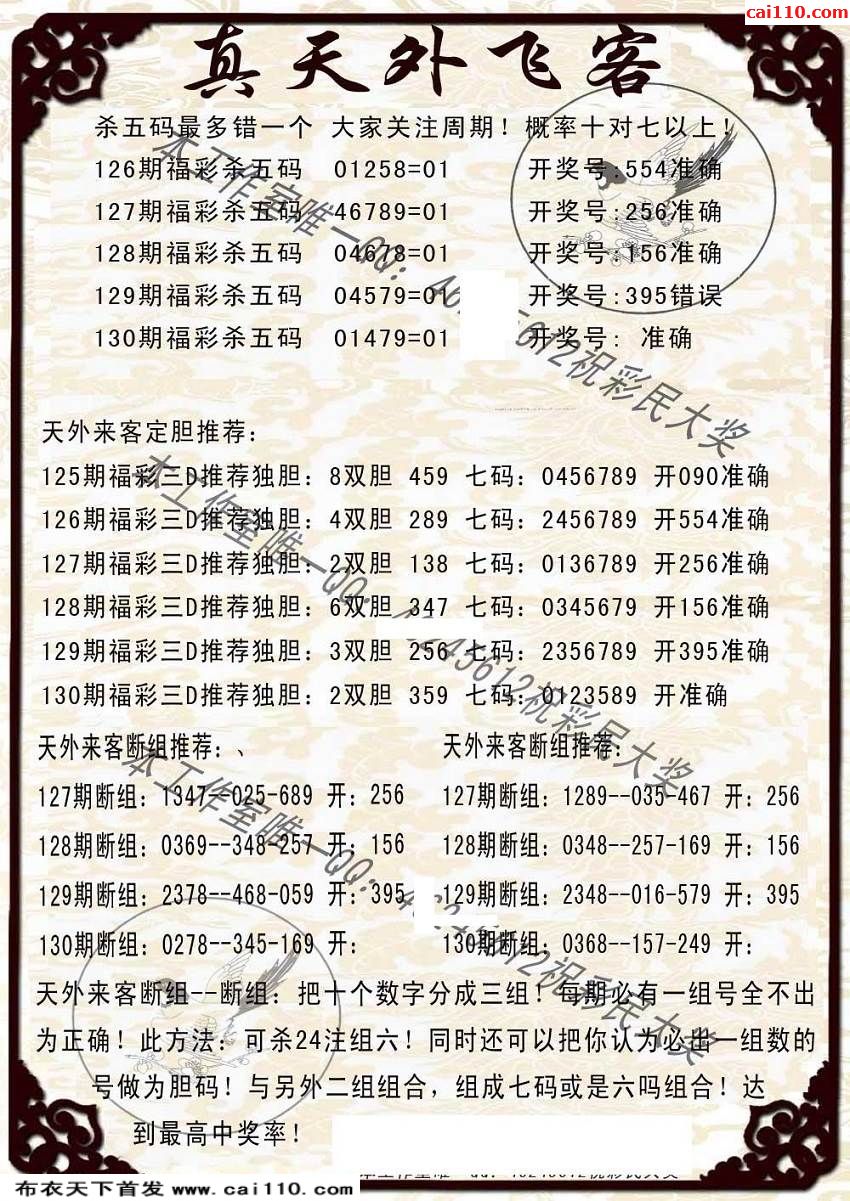 cai110.com
真天外飞客
杀五码最多错一个 大家关注周期！概率十对七以上！
126期福彩杀五码 01258=01 开奖号:554准确
127期福彩杀五码 46789=01 开奖号:256准确
128期福彩杀五码 04678=01 开奖号:156准确
129期福彩杀五码 04579=01 开奖号:395错误
130期福彩杀五码 01479=01 开奖号: 准确
天外来客定胆推荐：
125期福彩三D推荐独胆：8双胆 459 七码：0456789 开090准确
126期福彩三D推荐独胆：4双胆 289 七码：2456789 开554准确
127期福彩三D推荐独胆：2双胆 138 七码：0136789 开256准确
128期福彩三D推荐独胆：6双胆 347 七码：0345679 开156准确
129期福彩三D推荐独胆：3双胆 256 七码：2356789 开395准确
130期福彩三D推荐独胆：2双胆 359 七码：0123589 开准确
天外来客断组推荐：、
127期断组：1347--025-689 开：256
128期断组：0369--348-257 开：156
129期断组：2378--468-059 开：395
130期断组：0278--345-169 开：
天外来客断组推荐：
127期断组：1289--035-467 开：256
128期断组：0348--257-169 开：156
129期断组：2348--016-579 开：395
130期断组：0368--157-249 开：
天外来客断组--断组：把十个数字分成三组！每期必有一组号全不出
为正确！此方法：可杀24注组六！同时还可以把你认为必出一组数的
号做为胆码！与另外二组组合，组成七码或是六吗组合！达
到最高中奖率！
本工作室唯一QQ： 5612祝彩民大奖
本工作室唯一QQ： 245612祝彩民大奖
本工作室唯一QQ： 5612祝彩民大奖
布衣天下首发 www.cai110.com